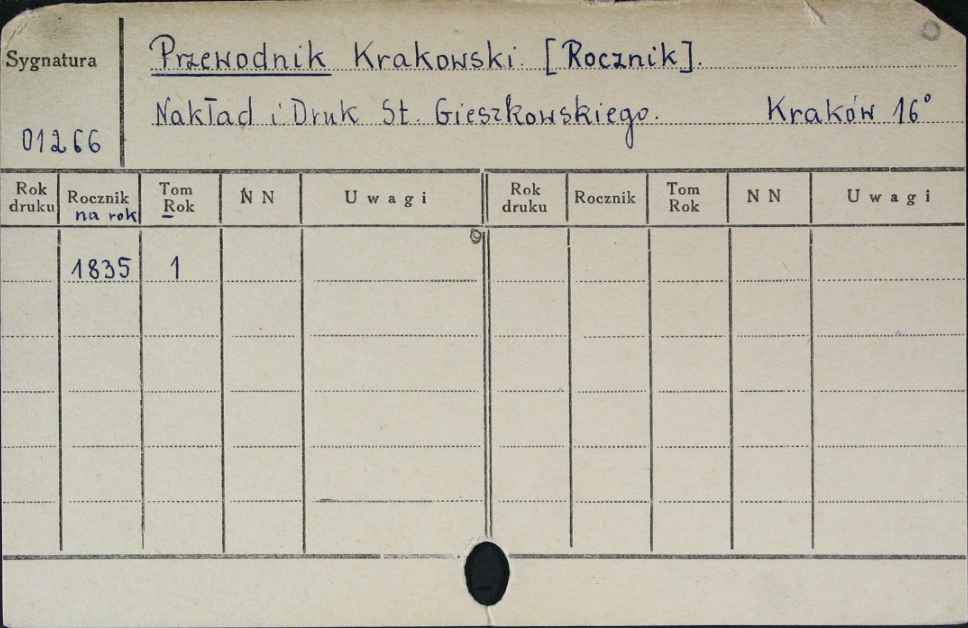 Sygnatura
Przewodnik Krakowski. [Rocznik].
Nakład i Druk St. Gieszkowskiego. Kraków 16°
01266
Rok druku Rocznik na rok Tom Rok NN Uwagi Rok druku Rocznik Tom Rok NN Uwagi
1835 1